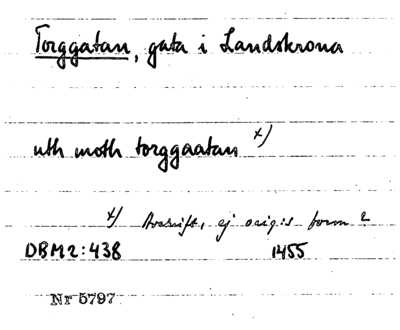 Torggatan, gata i Landskrona
uth moth torggaatan x)
x) Avskrift, ej orig:s form?
DBM2:438 1455
Nr 5797